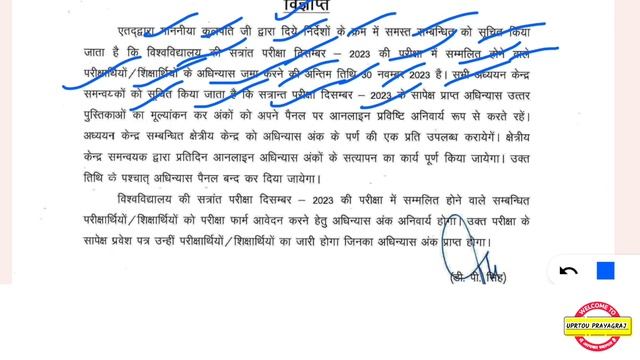 विज्ञप्ति
एतद्द्वारा माननीया कुलपति जी द्वारा दिये निर्देशों के क्रम में समस्त सम्बन्धित को सूचित किया
जाता है कि विश्वविद्यालय की सत्रांत परीक्षा दिसम्बर – 2023 की परीक्षा में सम्मलित होने वाले
परीक्षार्थियों/शिक्षार्थियों के अधिन्यास जमा करने की अन्तिम तिथि 30 नवम्बर 2023 है। सभी अध्ययन केन्द्र
समन्वयकों को सूचित किया जाता है कि सत्रान्त परीक्षा दिसम्बर – 2023 के सापेक्ष प्राप्त अधिन्यास उत्तर
पुस्तिकाओं का मूल्यांकन कर अंकों को अपने पैनल पर आनलाइन प्रविष्टि अनिवार्य रूप से करते रहें।
अध्ययन केन्द्र सम्बन्धित क्षेत्रीय केन्द्र को अधिन्यास अंक के पर्ण की एक प्रति उपलब्ध करायेगें। क्षेत्रीय
केन्द्र समन्वयक द्वारा प्रतिदिन आनलाइन अधिन्यास अंकों के सत्यापन का कार्य पूर्ण किया जायेगा। उक्त
तिथि के पश्चात् अधिन्यास पैनल बन्द कर दिया जायेगा।
विश्वविद्यालय की सत्रांत परीक्षा दिसम्बर – 2023 की परीक्षा में सम्मलित होने वाले सम्बन्धित
परीक्षार्थियों/शिक्षार्थियों को परीक्षा फार्म आवेदन करने हेतु अधिन्यास अंक अनिवार्य होगा। उक्त परीक्षा के
सापेक्ष प्रवेश पत्र उन्हीं परीक्षार्थियों/शिक्षार्थियों का जारी होगा जिनका अधिन्यास अंक प्राप्त होगा।
(डी. पी. सिंह)
WELCOME TO
UPRTOU PRAYAGRAJ